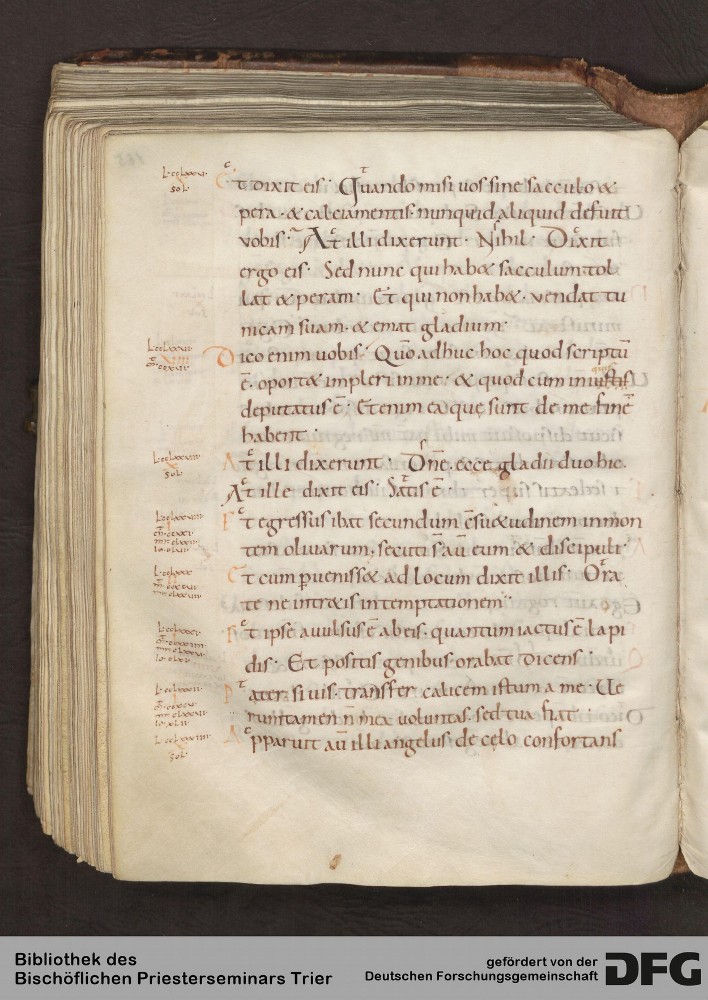 Et dixit eis · Quando misi vos sine sacculo &
pera · & calciamentis nunquid aliquid defuit
vobis · At illi dixerunt · Nihil · Dixit
ergo eis · Sed nunc qui hab& sacculum tol
lat & peram · Et qui non hab& · vendat tu
nicam suam · & emat gladium
Dico enim vobis · Qm̄ adhuc hoc quod scriptū
ē · oport& impleri in me · & quod cum iniustis
deputatus ē · Etenim ea quę sunt de me finē
habent ·
At illi dixerunt · Dn̄e · ecce gladii duo hic ·
At ille dixit eis · Satis ē ·
Et egressus ibat secundum
tem olivarum · secuti s̄ aū eum & discipuli ·
Et cum pueniss& ad locum dixit illis · Ora
te ne intr&is in temptationem
Et ipse avulsus ē ab eis · quantum iactus ē lapi
dis · Et positis genibus orabat dicens ·
Pater si vis · transfer calicem istum a me · Ue
runtamen n̄ mea voluntas · sed tua fiat
Apparuit aū illi angelus de cęlo confortans
Bibliothek des
Bischöflichen Priesterseminars Trier
gefördert von der
Deutschen Forschungsgemeinschaft
DFG